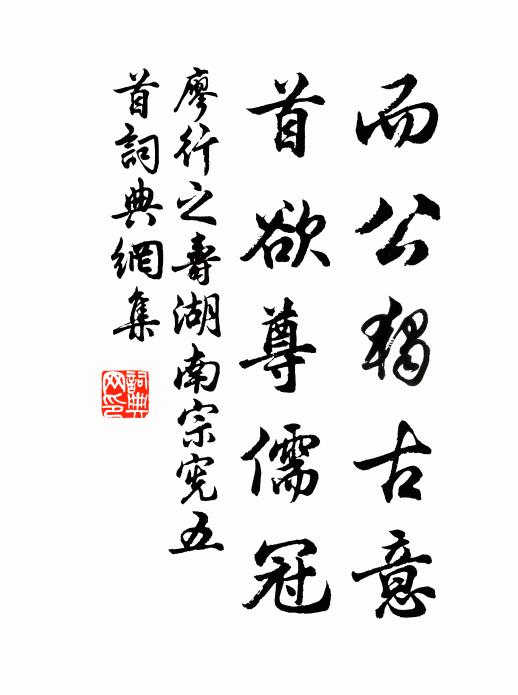 而公独古意
首欲尊儒冠
廖行之寿湖南宗宪五
首詞典網集
詞典网印